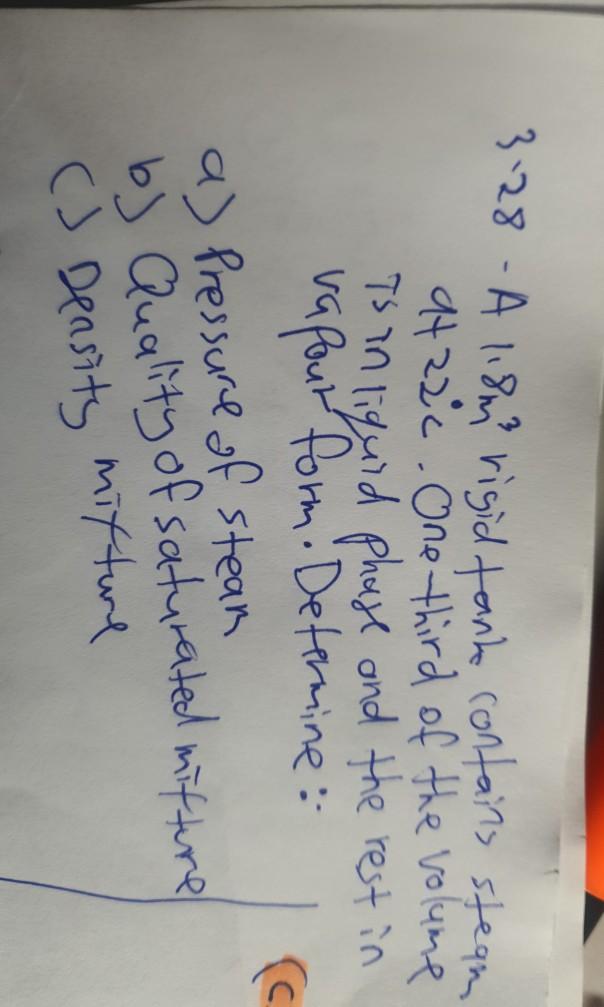 3.28 - A 1.8m³ rigid tank contains steam
at 22°c. One-third of the volume
is in liquid phase and the rest in
vapour form. Determine:
a) Pressure of steam
b) Quality of saturated mixture
c) Density mixture
(c